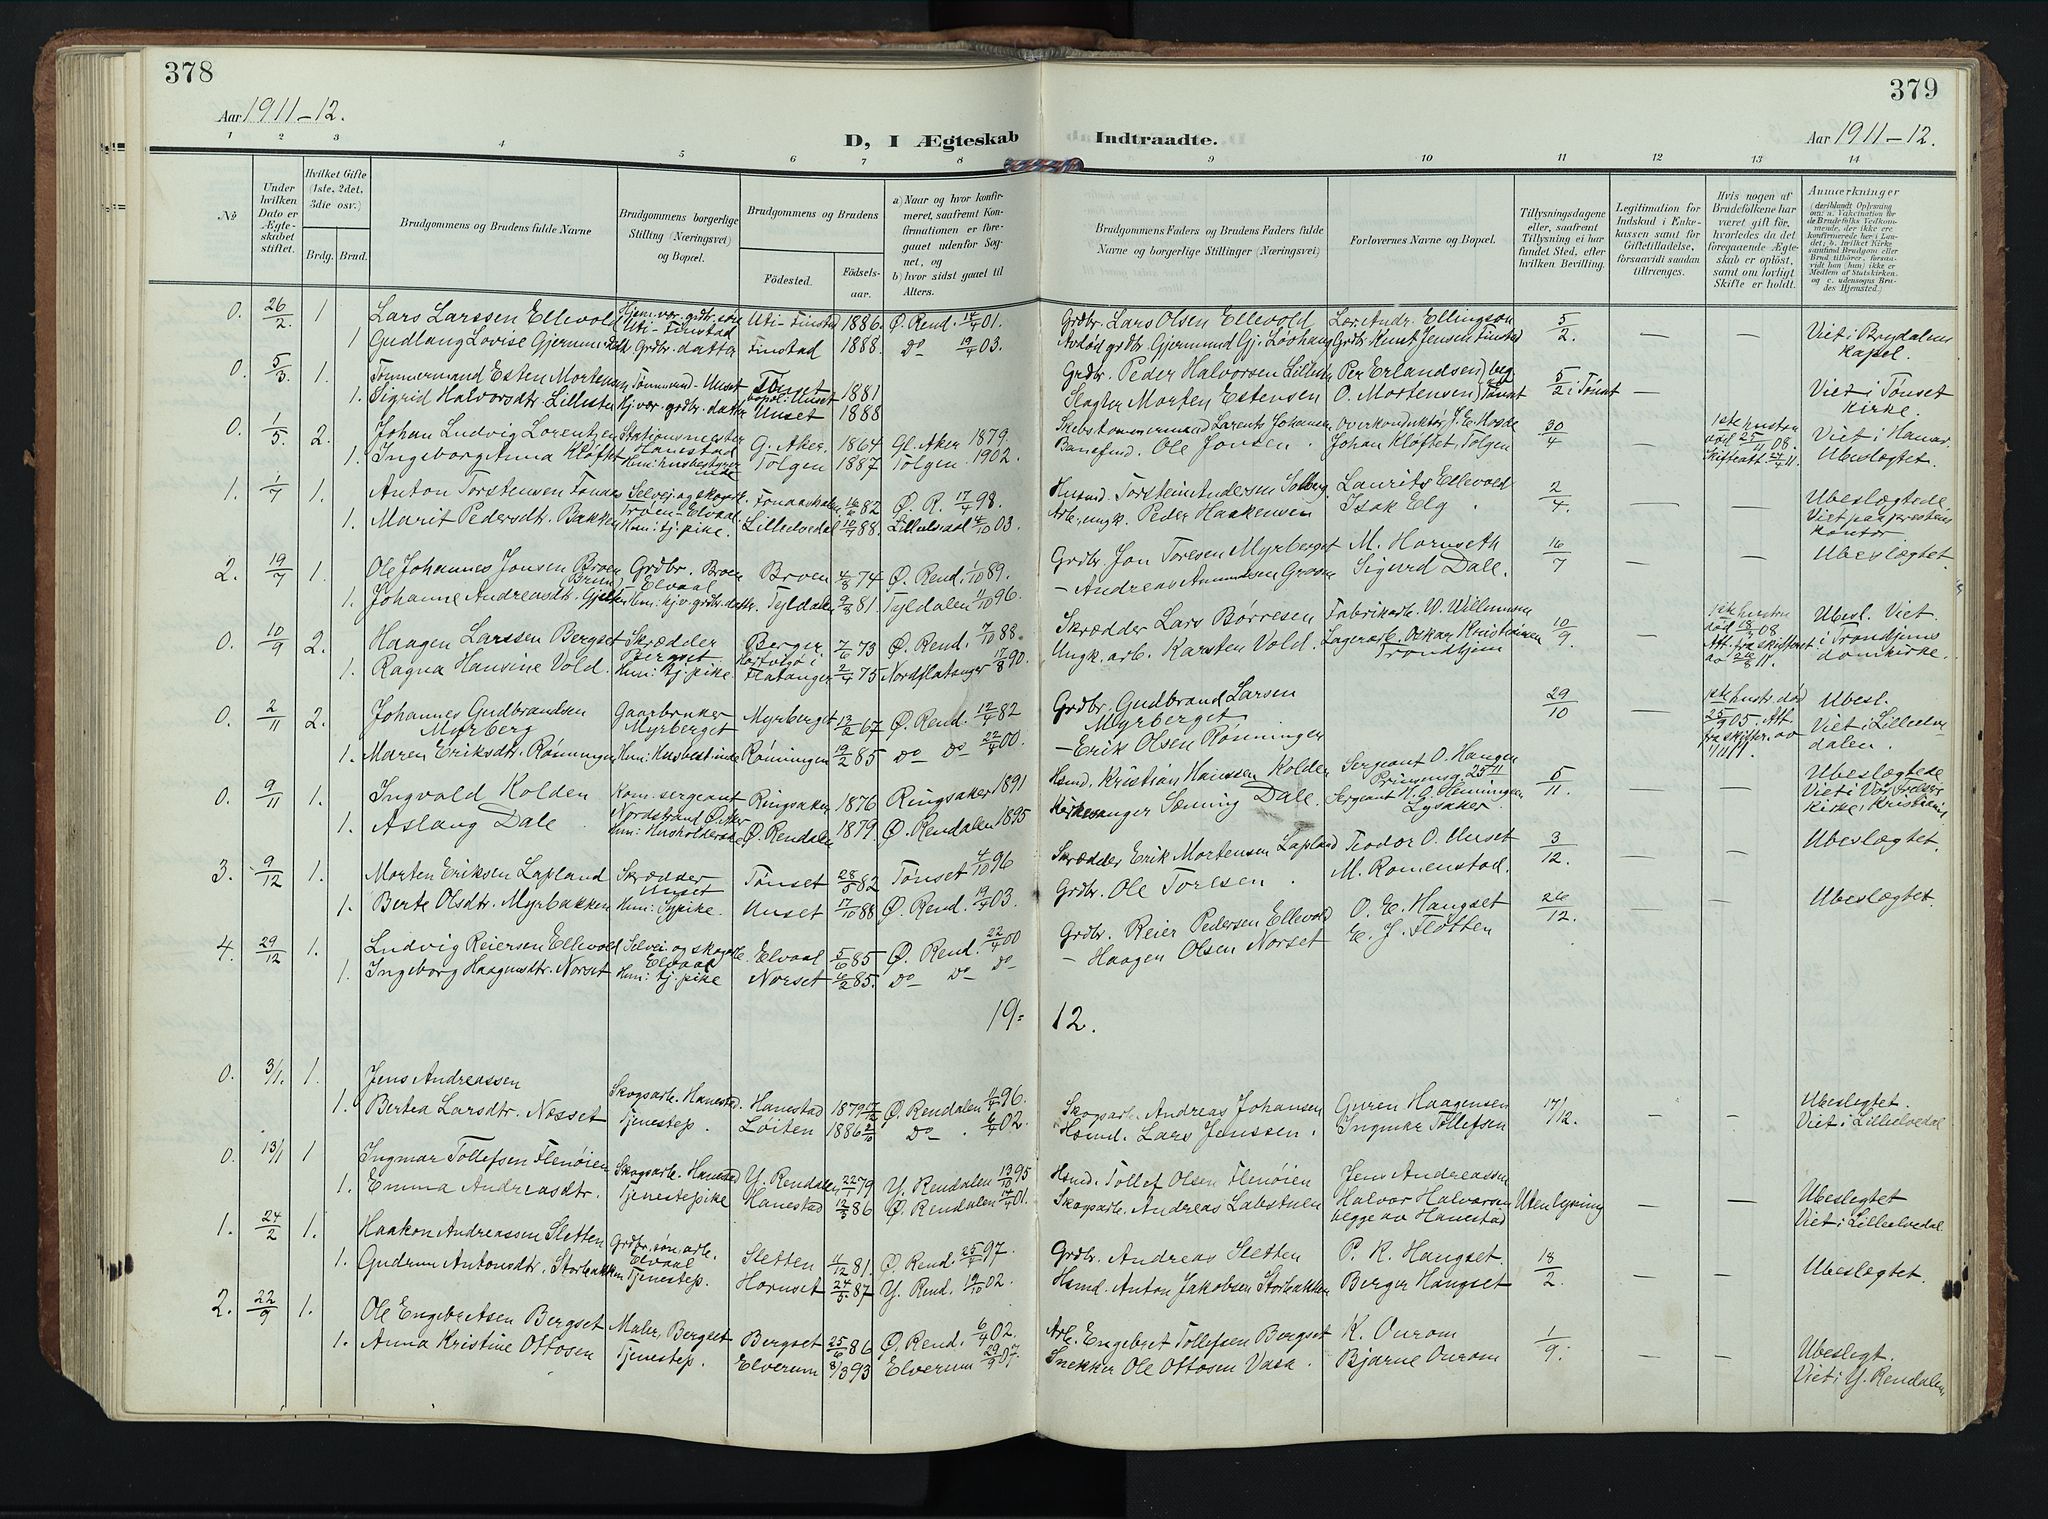 378
379
Aar 1911-12.
D, I Ægteskab Indtraadte.
Aar 1911-12.
1 2 3 4 5 6 7 8 9 10 11 12 13 14
No
Under hvilken Dato er Ægteskabet stiftet.
Hvilket Gifte (1ste, 2det, 3die osv.)
Brdg. Brud.
Brudgommens og Brudens fulde Navne
Brudgommens borgerlige Stilling (Næringsvei) og Bopæl.
Brudgommens og Brudens
Fødested. Fødselsaar.
a) Naar og hvor konfirmeret, saafremt Konfirmationen er foregaaet udenfor Sognet, og
b) hvor sidst gaaet til Alters.
Brudgommens Faders og Brudens Faders fulde Navne og borgerlige Stillinger (Næringsvei)
Forlovernes Navne og Bopæl.
Tillysningsdagene eller, saafremt Tillysning ei har fundet Sted, efter hvilken Bevilling.
Legitimation for Indskud i Enkekassen samt for Giftetilladelse, forsaavidt saadan tiltrænges.
Hvis nogen af Brudefolkene har været gift før, hvorledes da det foregaaende Ægteskab er opløst, samt om lovligt Skifte er holdt.
Anmærkninger (deriblandt Oplysning om: a. Vakcination for de Brudefolks Vedkommende, der ikke ere konfirmerede her i Landet; b. hvilket Kirkesamfund Brudgom eller Brud tilhører, forsaavidt han (hun) ikke er Medlem af Statskirken, og c. udensogns Brudes Hjemsted.)
0. 26/2. 1 Lars Larssen Ellevold Hjem.vær. grdbr. søn Uti-Finstad Uti-Finstad 1886. Ø. Rend. 14/4 01. Grdbr. Lars Olsen Ellevold Lor. Andr. Ellingson 5/2. — — Viet i Brydalens kapel.
1 Gudlaug Lovise Gjermundsdtr. Grdbr. datter Finstad 1888. Do 19/4 03. Avdød grdbr. Gjermund Gj. Løvhaug Grdbr. Knut Jensen Finstad
0. 5/3. 1. Tømmermand Esten Mortensen Tømmermd. Unset Tønset bopæl: Unset 1881 Grdbr. Peder Halvorsen Lilleun Per Erlandsen } beg. 5/2 i Tønset — Viet i Tønset kirke.
1. Sigrid Halvorsdtr. Lillesten Hj.vær. grdbr. datter Unset 1888 Slagter Morten Estensen O. Mortensen } Tønset
0. 1/5. 2. Johan Ludvig Lorentzen Stationsmester Hanestad G. Aker. 1864 Gl. Aker 1879. Skibstømmermand Larents Johansen Overkonduktør J. E. Hoske 30/4 — 1ste hustru død 25/11 08. Skifteatt. 24/4 11. Viet i Hanes. Ubeslægtet.
1. Ingeborg Anna Kløftet Hun: husbestyrerinde Tolgen 1887 Tolgen. 1902. Banefmd. Ole Jonsen. Johan Kløftet, Tolgen
1. 1/7 1. Anton Torstensen Fonaas Selvej og skogarb. Broen-Elvaal Fonaaskalen 16/6 82 Ø. R. 17/4 98. Husmd. Torstein Andersen Solberg Laurits Ellevold 2/4. — — Ubeslægtede Viet paa prestens kontor
1. Marit Pedersdtr. Bakken Hun: tj. pike. Lilleelvedal 10/4 88. Lilleelvedal 4/10 03. Arb., ungk. Peder Haakensen Isak Elg.
2. 19/7 1. Ole Johannes Jonsen Broen (Bruen) Grdbr. Broen Elvaal Broen 4/8 74 Ø. Rend. 1/10 89. Grdbr. Jon Toresen Myrberget M. Hornseth 16/7 — — Ubeslægtet.
1. Johanne Andreasdtr. Gjelten Hun: hj.v. grdbr. dattr. Tyldalen 9/8 81. Tyldalen 11/10 96. — Andreas Amundsen Groom Sigurd Dale.
0. 10/9 2. Haagen Larssen Bergset Skrædder Bergset Berger 7/6 73 Ø. Rend. 7/10 88. Skrædder Lars Børresen Fabrikarb. W. Willumsen 10/9. — 1ste hustru død 18/7 08 Att. fra skifteret av 26/8 11. Ubesl. Viet i Trondhjems domkirke.
1. Ragna Hansine Vold. Hun: tj. pike Hortvigø i Flatanger 2/4 75 Nordflatanger 17/8 90. Ungk. arb. Karsten Vold. Lagerarb. Oskar Kristiansen Trondhjem
0. 2/11 2. Johannes Gudbrandsen Myrberg Gaarbruker Myrberget Myrberget 13/2 67 Ø. Rend. 12/4 82 Grdbr. Gudbrand Larsen Myrberget 29/10 — 1ste hustr. død 25/9 05. Att. fra skifter. av 1/11 11. Ubesl. Viet i Lilleelvedalen.
1. Maren Eriksdtr. Rønningen Hun: Husbest.inde Rønningen 19/2 85 Do Do 22/4 00. — Erik Olsen Rønningen
0. 9/11 1. Ingvald Kolden Kom. sergeant Nordstrand Ø. Aker Ringsaker 1876 Ringsaker 1891 Husmd. Kristian Hanssen Kolden Sergeant O. Haugen Prinsensg. 25 II 5/11. — — Ubeslægtede Viet i Vor Frelsers kirke i Kristiania
1. Aslaug Dale. Hun: Husholderske Ø. Rendalen 1879 Ø. Rendalen 1895 Kirkesanger Sæming Dale. Sergeant K. G. Henningsen Lysaker.
3. 9/12 1. Morten Eriksen Lapland Skrædder Unset Tønset 28/5 82 Tønset 4/10 96 Skrædder Erik Mortensen Lapland Teodor O. Unset 3/12. — — Ubeslægtet.
1. Berte Olsdtr. Myrbakken Hun: Sypike. Unset 17/10 88 Ø. Rend. 19/4 03. Grdbr. Ole Toresen. M. Romenstad.
4. 29/12 1. Ludvig Reiersen Ellevold Selvei. og skogarb. Elvaal Elvaal 5/6 85 Ø. Rend. 22/4 00 Grdbr. Reier Pedersen Ellevold O. E. Haugset 26/12. — — Ubeslægtet.
1. Ingeborg Haagensdtr. Norset Hun: tj. pike Norset 6/2 85. Do Do Do — Haagen Olsen Norset E. J. Fløtten
19=12.
0. 3/1. 1. Jens Andreassen Skogsarb. Hanestad. Hanestad 1879 17/12 Ø. Rendalen 4/4 96. Skogsarb. Andreas Johansen Guren Haagensen 17/12. — — Ubeslegtet. Viet i Lilleelvedal
1. Bertea Larsdtr. Næsset Tjenestep. Løiten 1886 2/10 Do. 6/4 02. Hsmd. Lars Jenssen. Ingmar Tollefsen
0. 13/1 1 Ingmar Tollefsen Flenøien Skogsarb. Hanestad Y. Rendalen 22/1 79 Y. Rendalen 13/10 95 Hsmd. Tollef Olsen Flenøien Jens Andreassen Uten lysning — — Ubeslegtet Viet i Lilleelvedal.
1. Emma Andreasdtr. Tjenestepike Hanestad 12/3 86 Ø. Rendalen 14/4 01. Skogsarb. Andreas Labstuen Halvor Halvorsen begge av Hanestad
1. 24/2 1. Haakon Andreassen Sletten Grdbr. søn. arb. Elvaal Sletten 4/12 81. Ø. Rend. 25/4 97. Grdbr. Andreas Sletten P. K. Haugset. 18/2. — — Ubeslegtet.
1. Gudrun Antonsdtr. Storbakken Tjenestep. Hornset 24/5 87 Y. Rend. 19/10 02. Hsmd. Anton Jakobsen Storbakken Berger Haugset
2. 22/9 1. Ole Engebretsen Bergset Maler, Bergset Bergset 25/6 86 Ø. Rend. 6/4 02. Arb. Engebret Tollefsen Bergset K. Ourom 1/9. — — Ubeslegt. Viet i Y. Rendalen
1. Anna Kristine Ottosen Tjenestep. Elverum 8/3 93 Elverum 29/9 07. Snekker Ole Ottosen Vasa. Bjarne Ourom